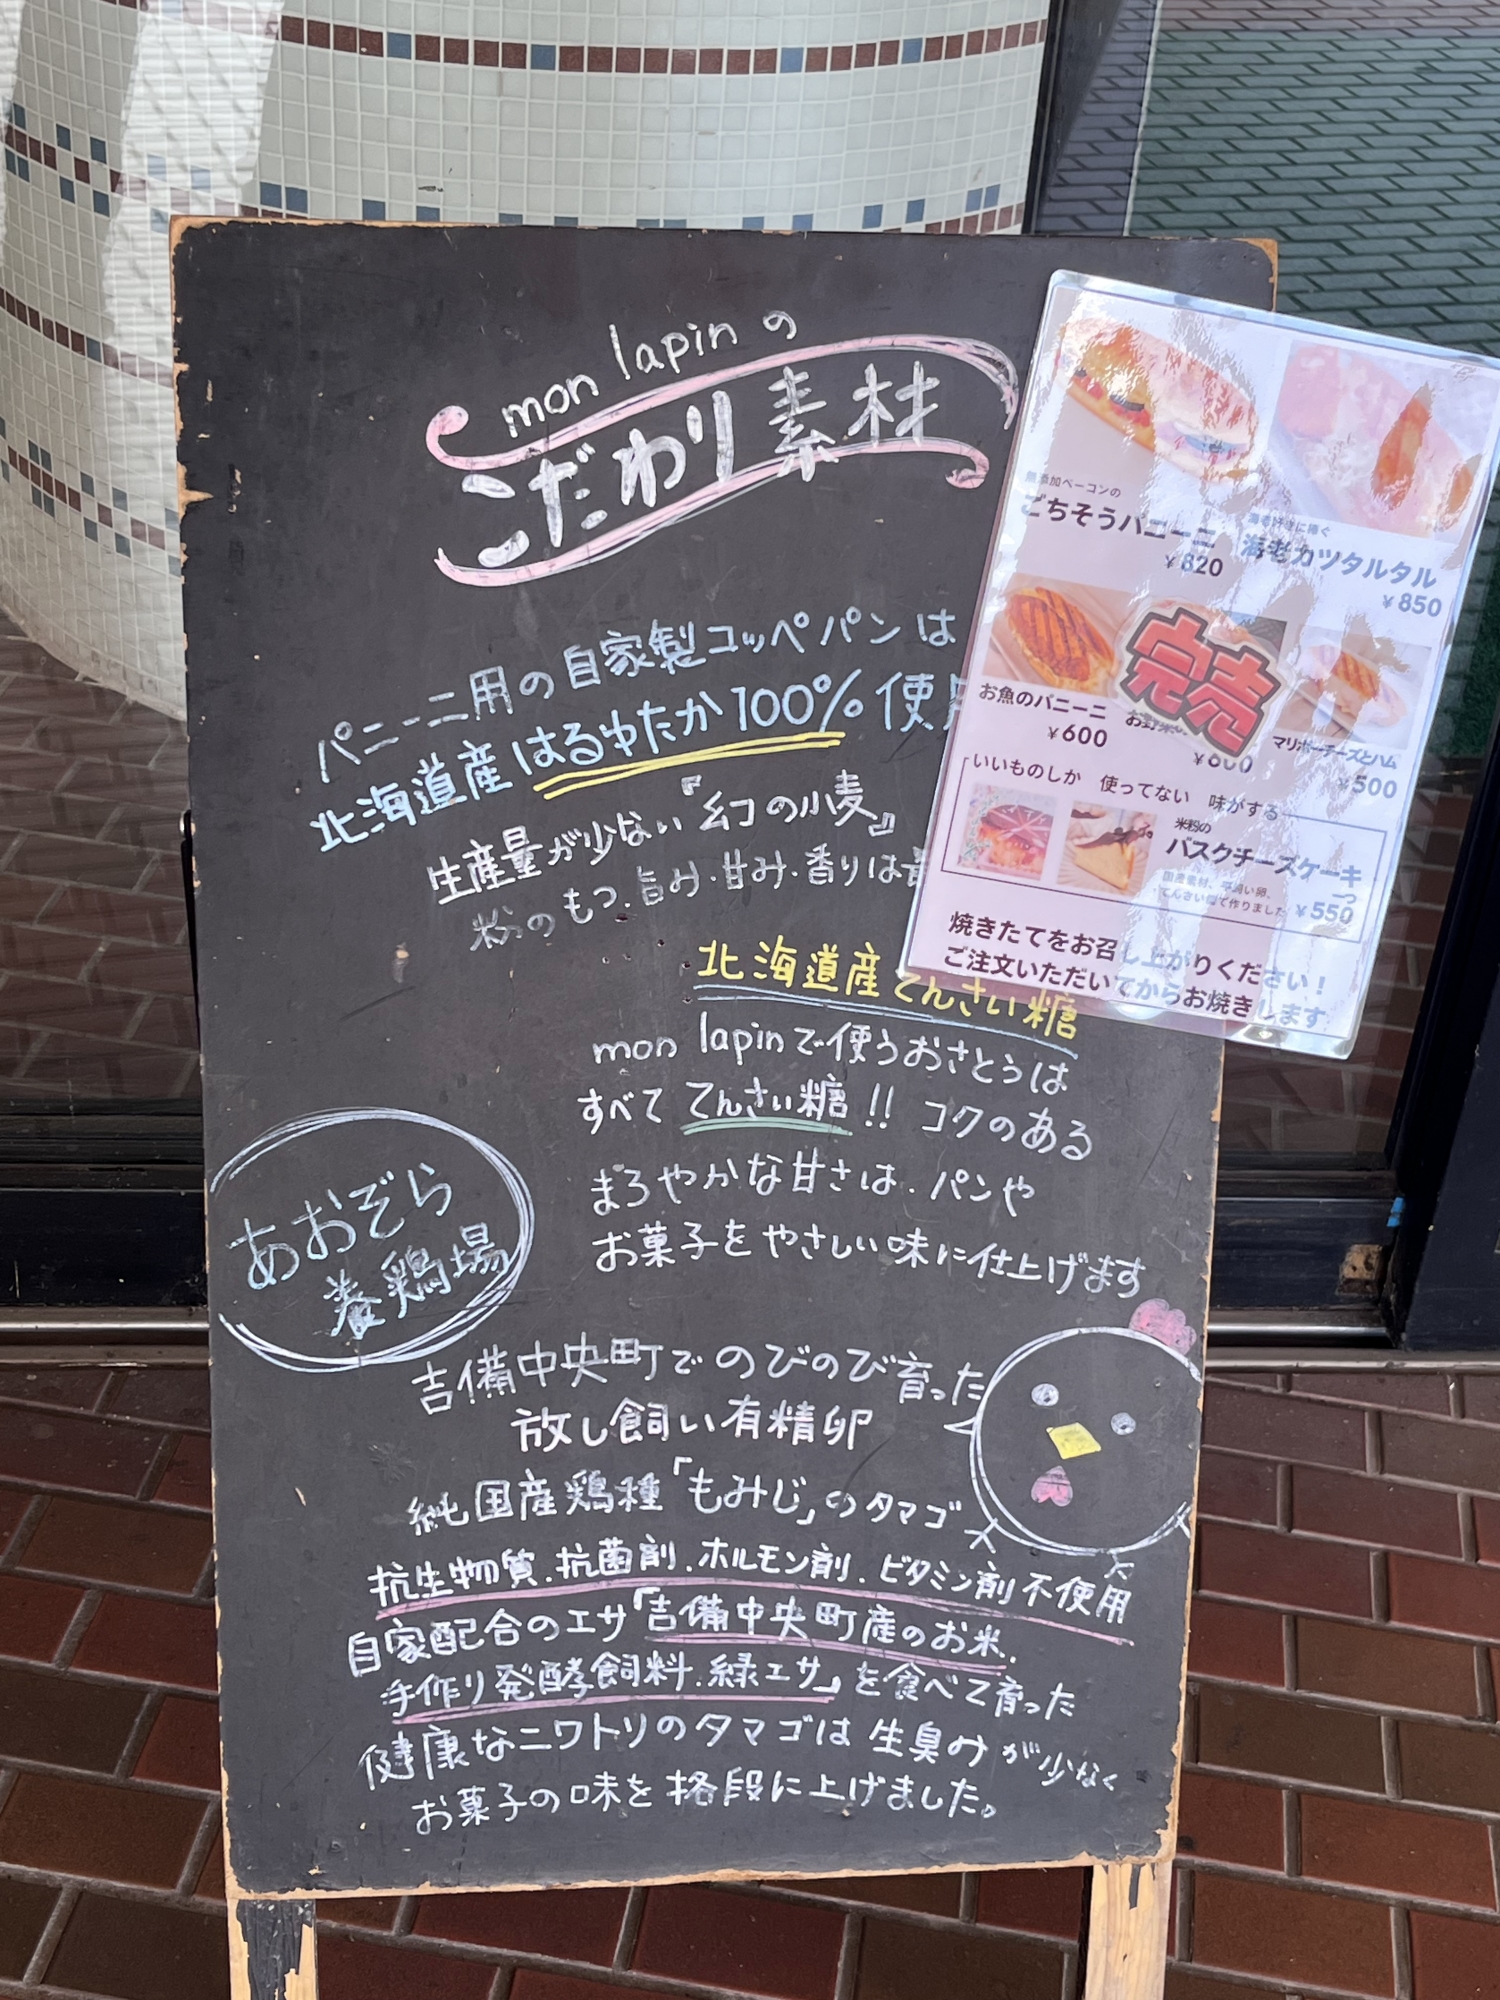 mon lapin の
こだわり素材
パニーニ用の自家製コッペパンは
北海道産はるゆたか100%使用
生産量が少ない『幻の小麦』
粉のもつ.旨み.甘み.香りは
北海道産てんさい糖
mon lapinで使うおさとうは
すべててんさい糖!! コクのある
まろやかな甘さは.パンや
お菓子をやさしい味に仕上げます
あおぞら
養鶏場
吉備中央町でのびのび育った
放し飼い有精卵
純国産鶏種「もみじ」のタマゴ
抗生物質.抗菌剤.ホルモン剤.ビタミン剤不使用
自家配合のエサ「吉備中央町産のお米.
手作り発酵飼料.緑エサ」を食べて育った
健康なニワトリのタマゴは生臭みが少なく
お菓子の味を格段に上げました。
無添加ベーコンの
ごちそうパニーニ
¥820
海老好きに捧ぐ
海老カツタルタル
¥850
お魚のパニーニ
¥600
お野菜
¥600
完売
マリボーチーズとハム
¥500
いいものしか 使ってない 味がする
米粉の
バスクチーズケーキ
国産素材、平飼い卵、
てんさい糖で作りました
¥550
焼きたてをお召し上がりください!
ご注文いただいてからお焼きします